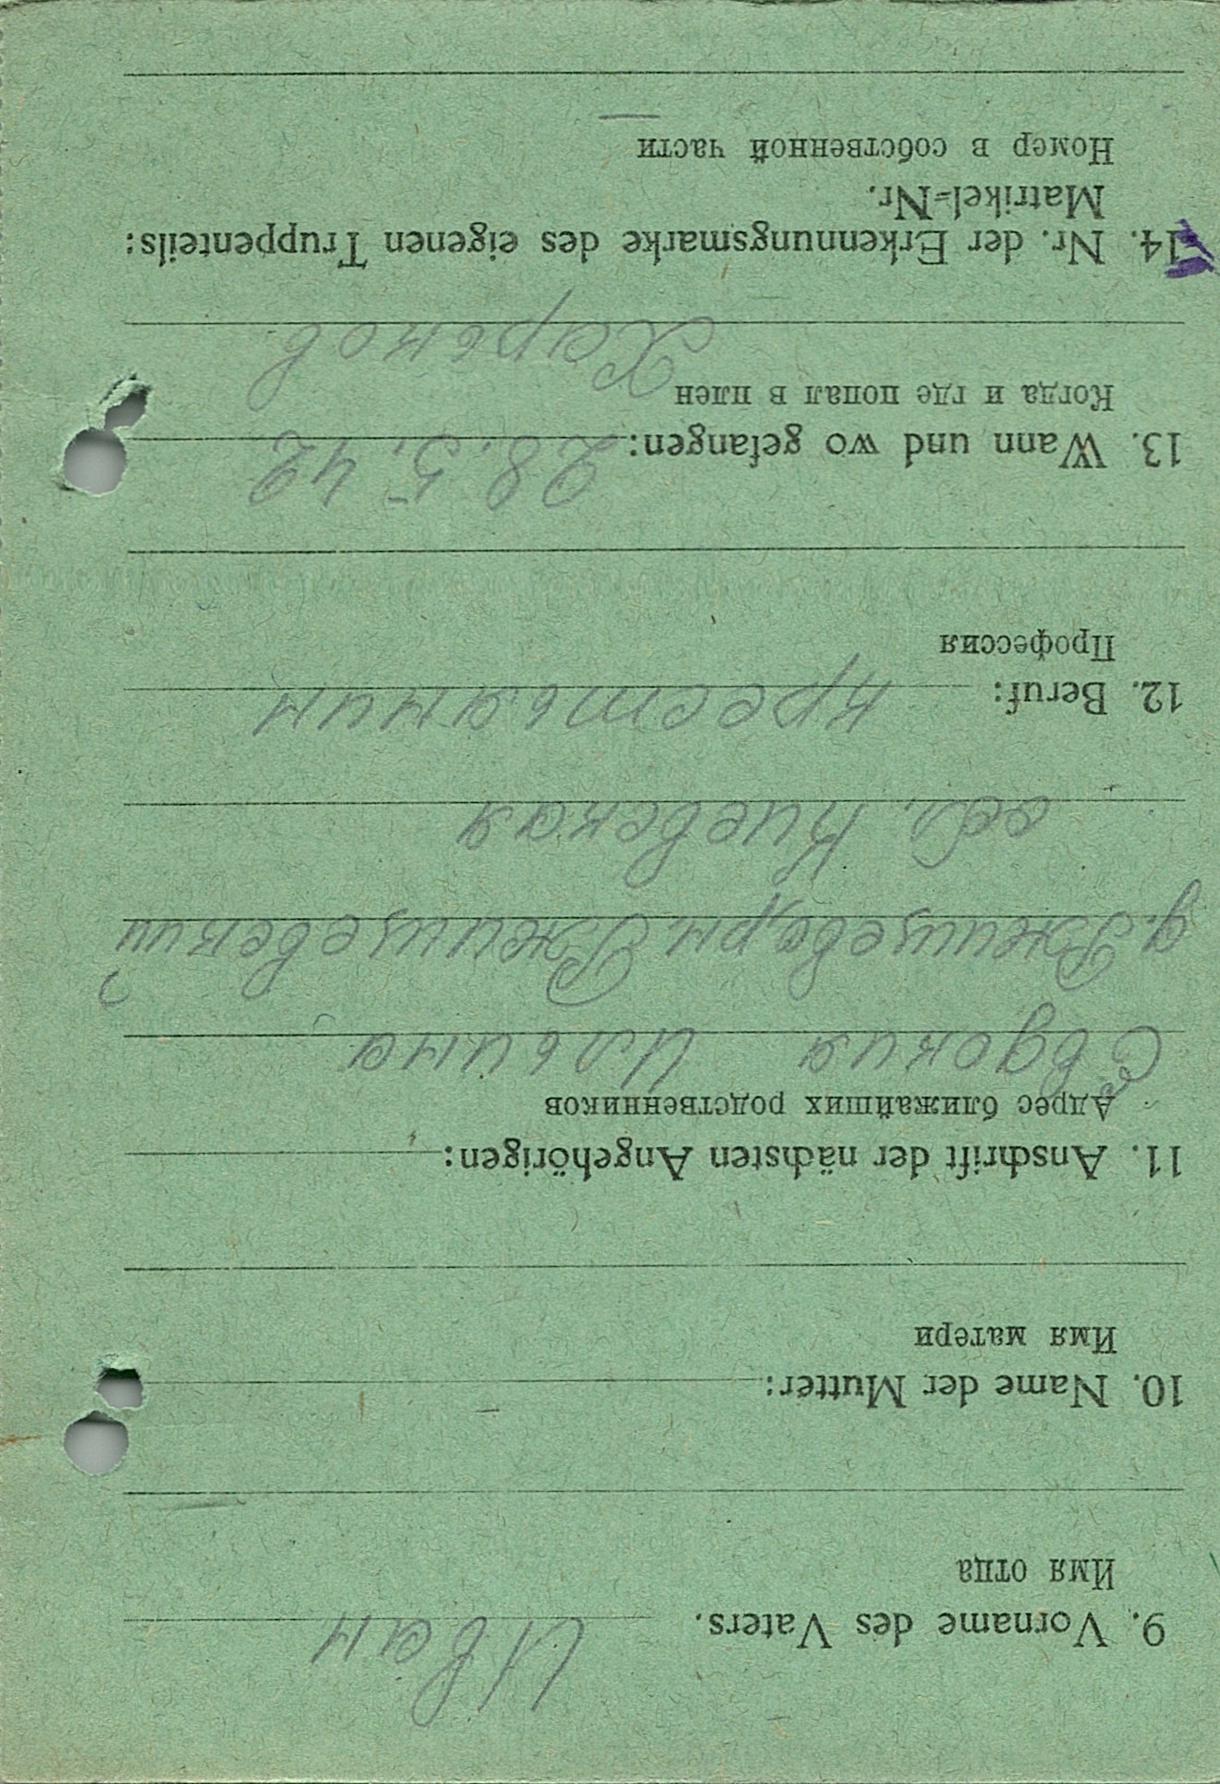 9. Vorname des Vaters. Иван
Имя отца
10. Name der Mutter: —
Имя матери
11. Anschrift der nächsten Angehörigen:
Адрес ближайших родственников
Евдокия Ильина
д. Ржищево, рн. Ржищевский
обл. Киевская
12. Beruf: крестьянин
Профессия
13. Wann und wo gefangen: 28.5.42
Когда и где попал в плен
Харьков
14. Nr. der Erkennungsmarke des eigenen Truppenteils:
Matrikel-Nr.
Номер в собственной части
—